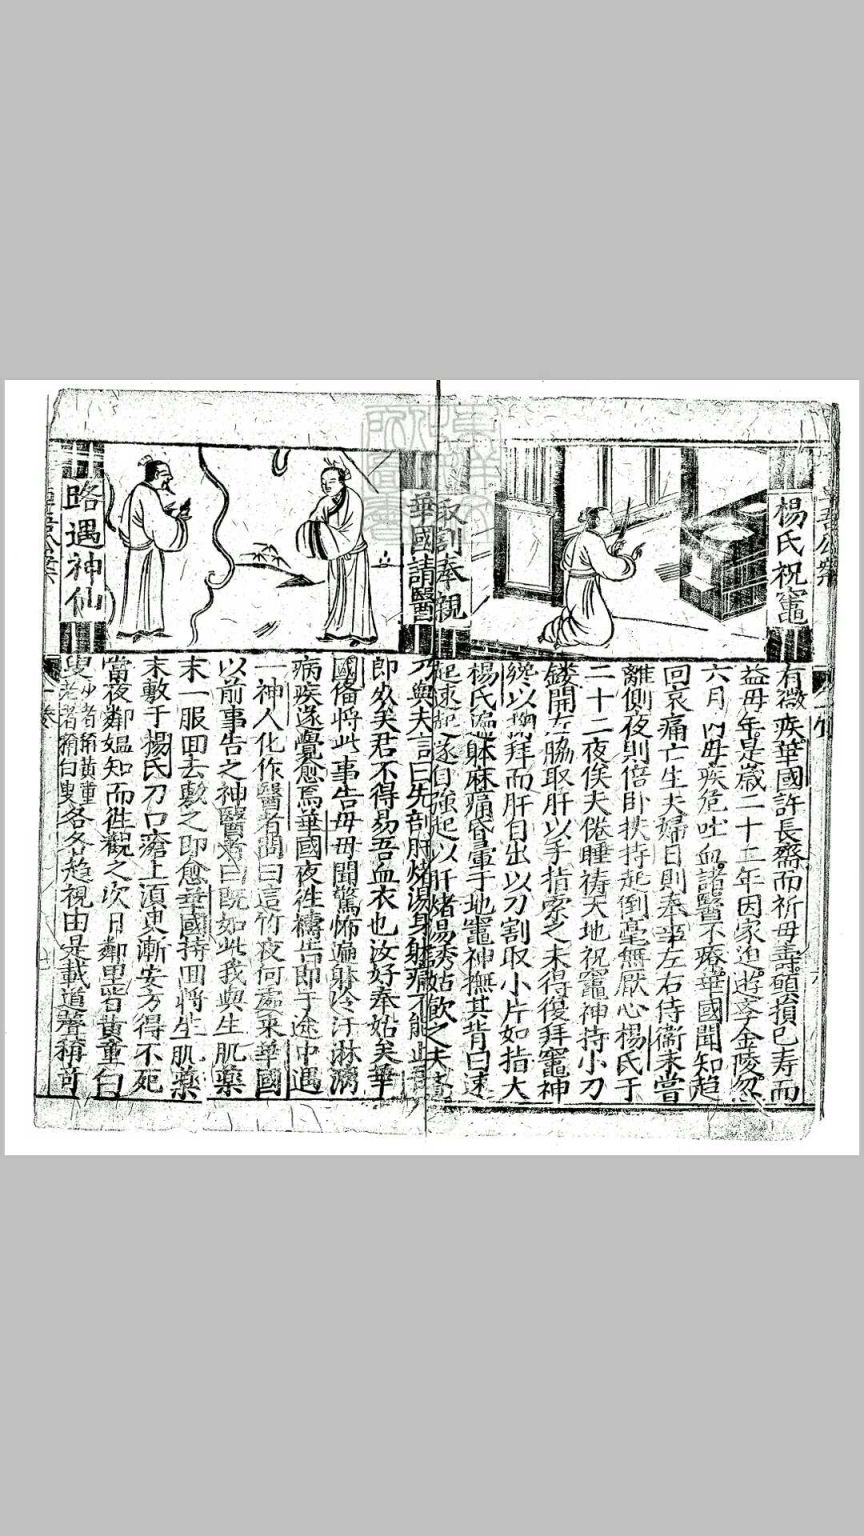 楊氏祝竈
取割奉親
有微疾華國許長齋而祈母壽願損己寿而
益母年是歲二十二年因家迫遊李金陵忽
六月内母疾危吐血諸醫不療華國聞知趋
回哀痛亡生夫婦日則奉藥左右侍衞未嘗
離側夜則倍卧扶持起倒毫無厭心楊氏于
二十二夜俟夫倦睡祷天地祝竈神持小刀
鏤開左脇取肝以手指索之未得復拜竈神
纔以拜而肝自出以刀割取小片如指大
楊氏遍躰麻痛昏暈于地竈神撫其背曰速
起速起遂自強起以肝烤湯秀姑飲之夫
華國請醫
路遇神仙
乃與夫言曰先剖肝烤湯身躰痛不能
即效矣君不得易吾血衣也汝好奉姑矣華
國俻將此事告母母聞驚怖遍躰冷汗淋漓
病疾遂覺愈焉華國夜徃禱告即于途中遇
一神人化作醫者問曰這竹夜何處來華國
以前事告之神醫者曰既如此我與生肌藥
末一服回去敷之即愈華國持回將生肌藥
末敷于楊氏刀口瘡上須臾漸安方得不死
當夜鄰媪知而徃觀之次日鄰里皆黄童白
叟各各趋視由是載道聲稱奇
少者稱黄童
老者稱白叟
一卷